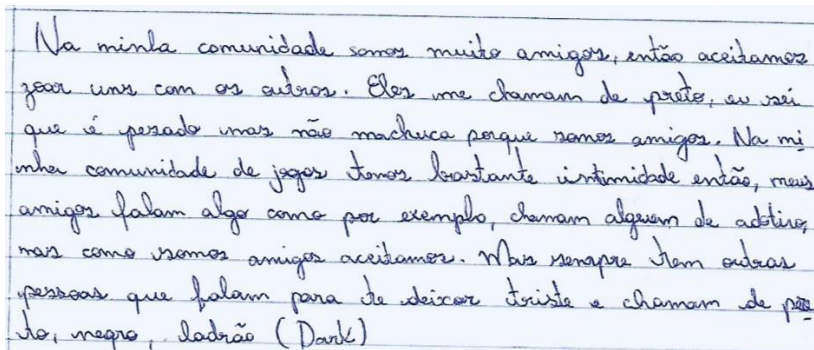 Na minha comunidade somos muito amigos, então aceitamos
zoar uns com os outros. Eles me chamam de preto, eu sei
que é pesado mas não machuca porque somos amigos. Na mi
nha comunidade de jogos temos bastante intimidade então, meus
amigos falam algo como por exemplo, chamam alguem de adotivo,
mas como somos amigos aceitamos. Mas sempre tem outras
pessoas que falam para te deixar triste e chamam de pre
to, negro, ladrão (Dark)